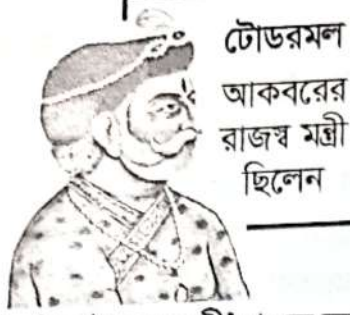 টোডরমল
আকবরের
রাজস্ব মন্ত্রী
ছিলেন